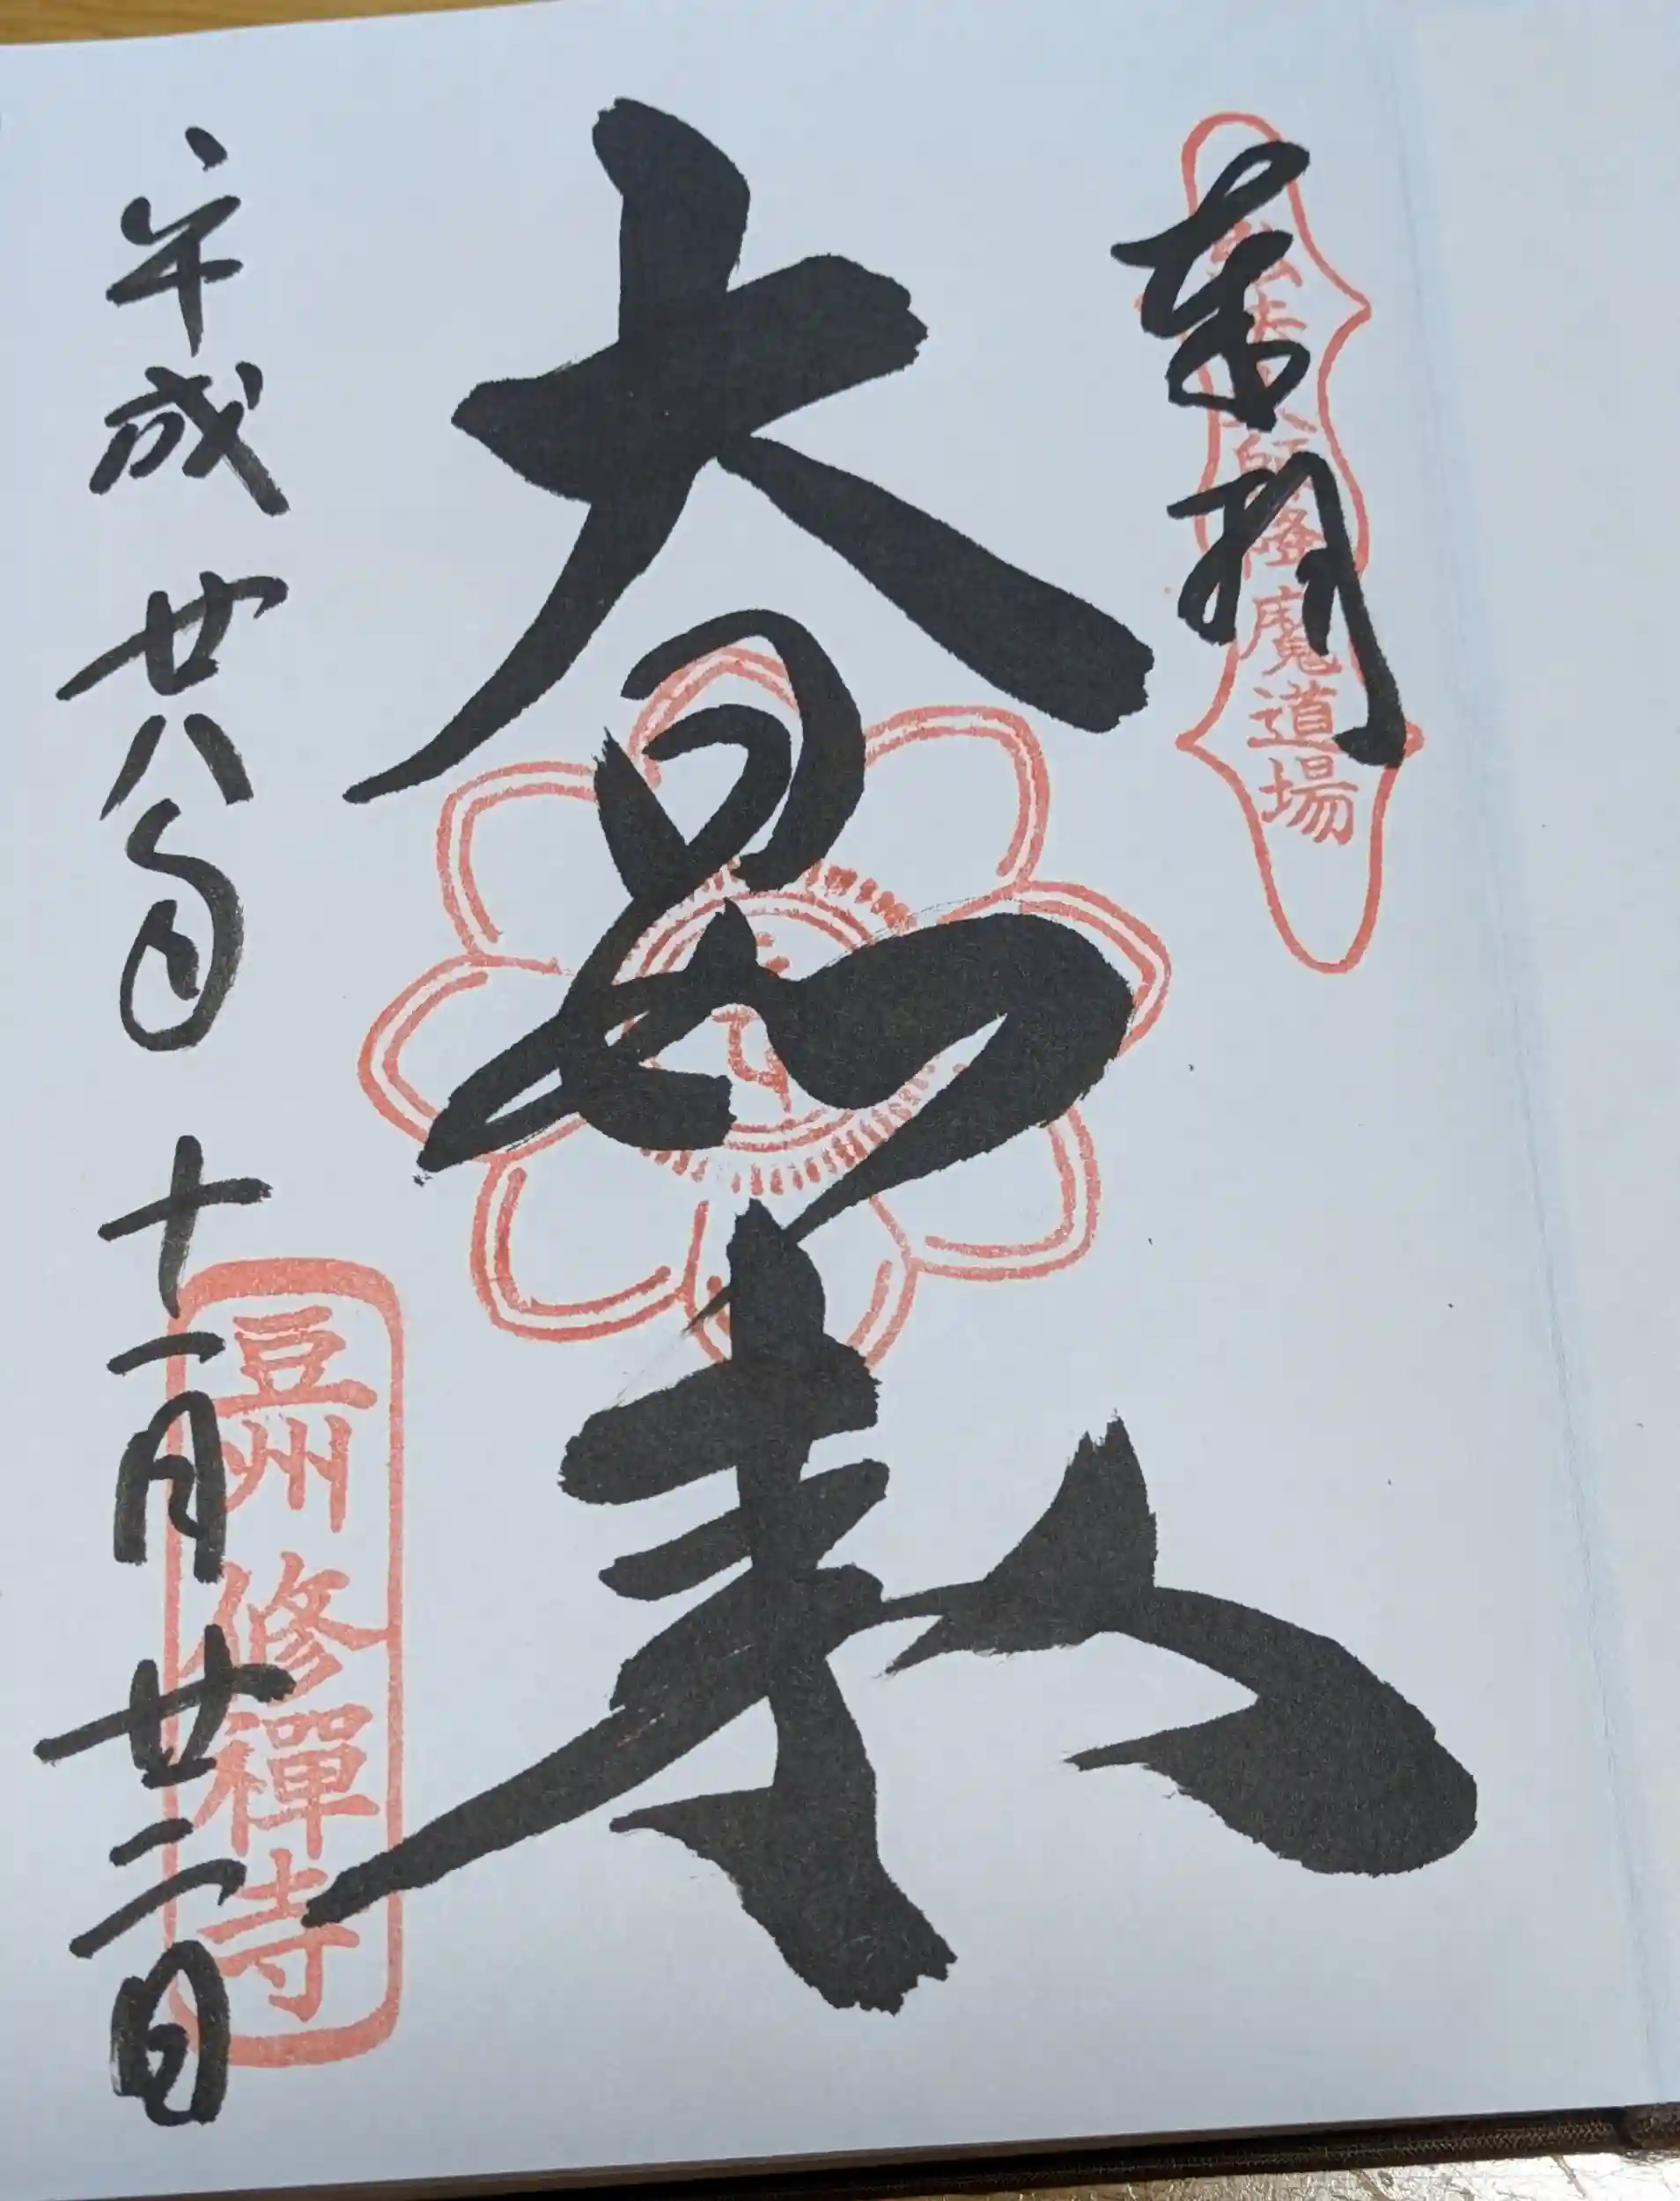 奉拝
弘法大師降魔道場
大日如来
平成廿八年十一月廿二日
豆州修禪寺